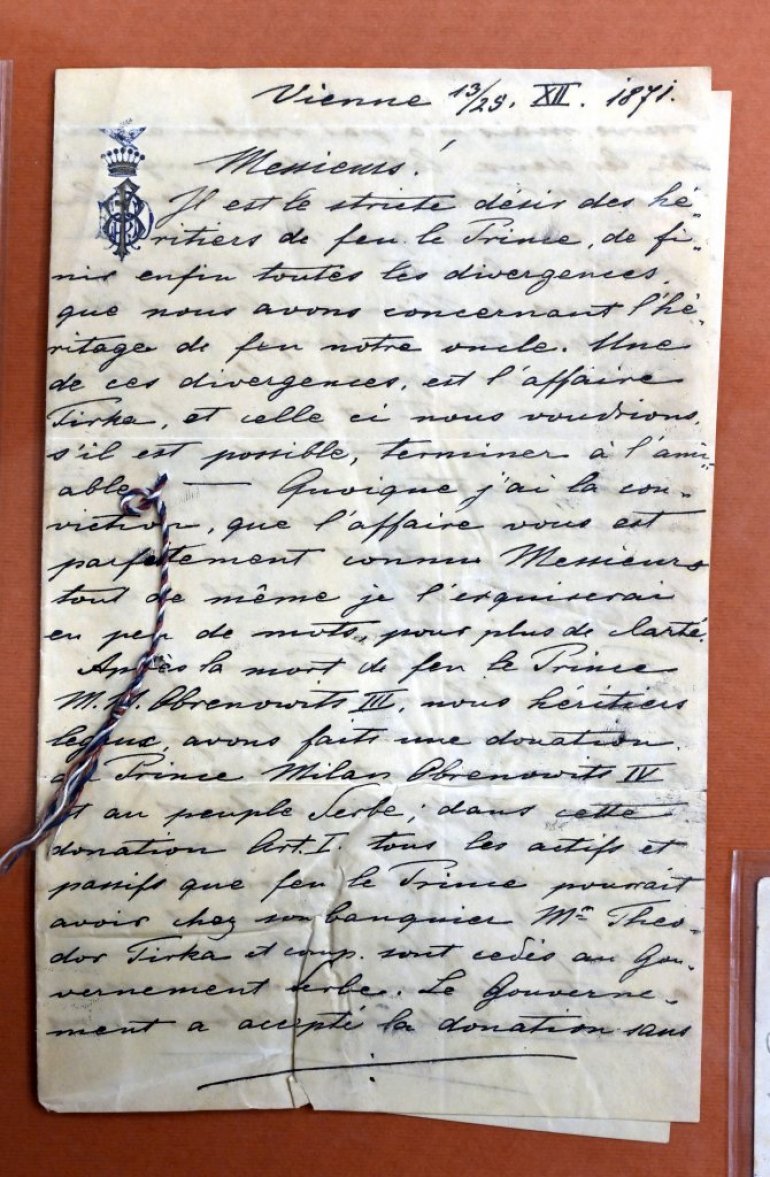 Vienne 13/25. XII. 1871.
Messieurs!
Il est le stricte désir des hé-
ritiers de feu le Prince, de fi-
nir enfin toutes les divergences,
que nous avons concernant l'hé-
ritage de feu notre oncle. Une
de ces divergences, est l'affaire
Tirka, et celle ci nous voudrions,
s'il est possible, terminer à l'ami-
able. — Quoique j'ai la con-
viction, que l'affaire vous est
parfaitement connue Messieurs
tout de même je l'esquiserai
en peu de mots, pour plus de clarté.
Après la mort de feu le Prince
M. M. Obrenowits III, nous héritiers
legaux, avons faits une donation
au Prince Milan Obrenowits IV
et au peuple Serbe; dans cette
donation Art. I. tous les actifs et
passifs que feu le Prince pourrait
avoir chez son banquier Mr. Theo-
dor Tirka et comp. sont cedés au Gou-
vernement Serbe. Le Gouverne-
ment a accepté la donation sans